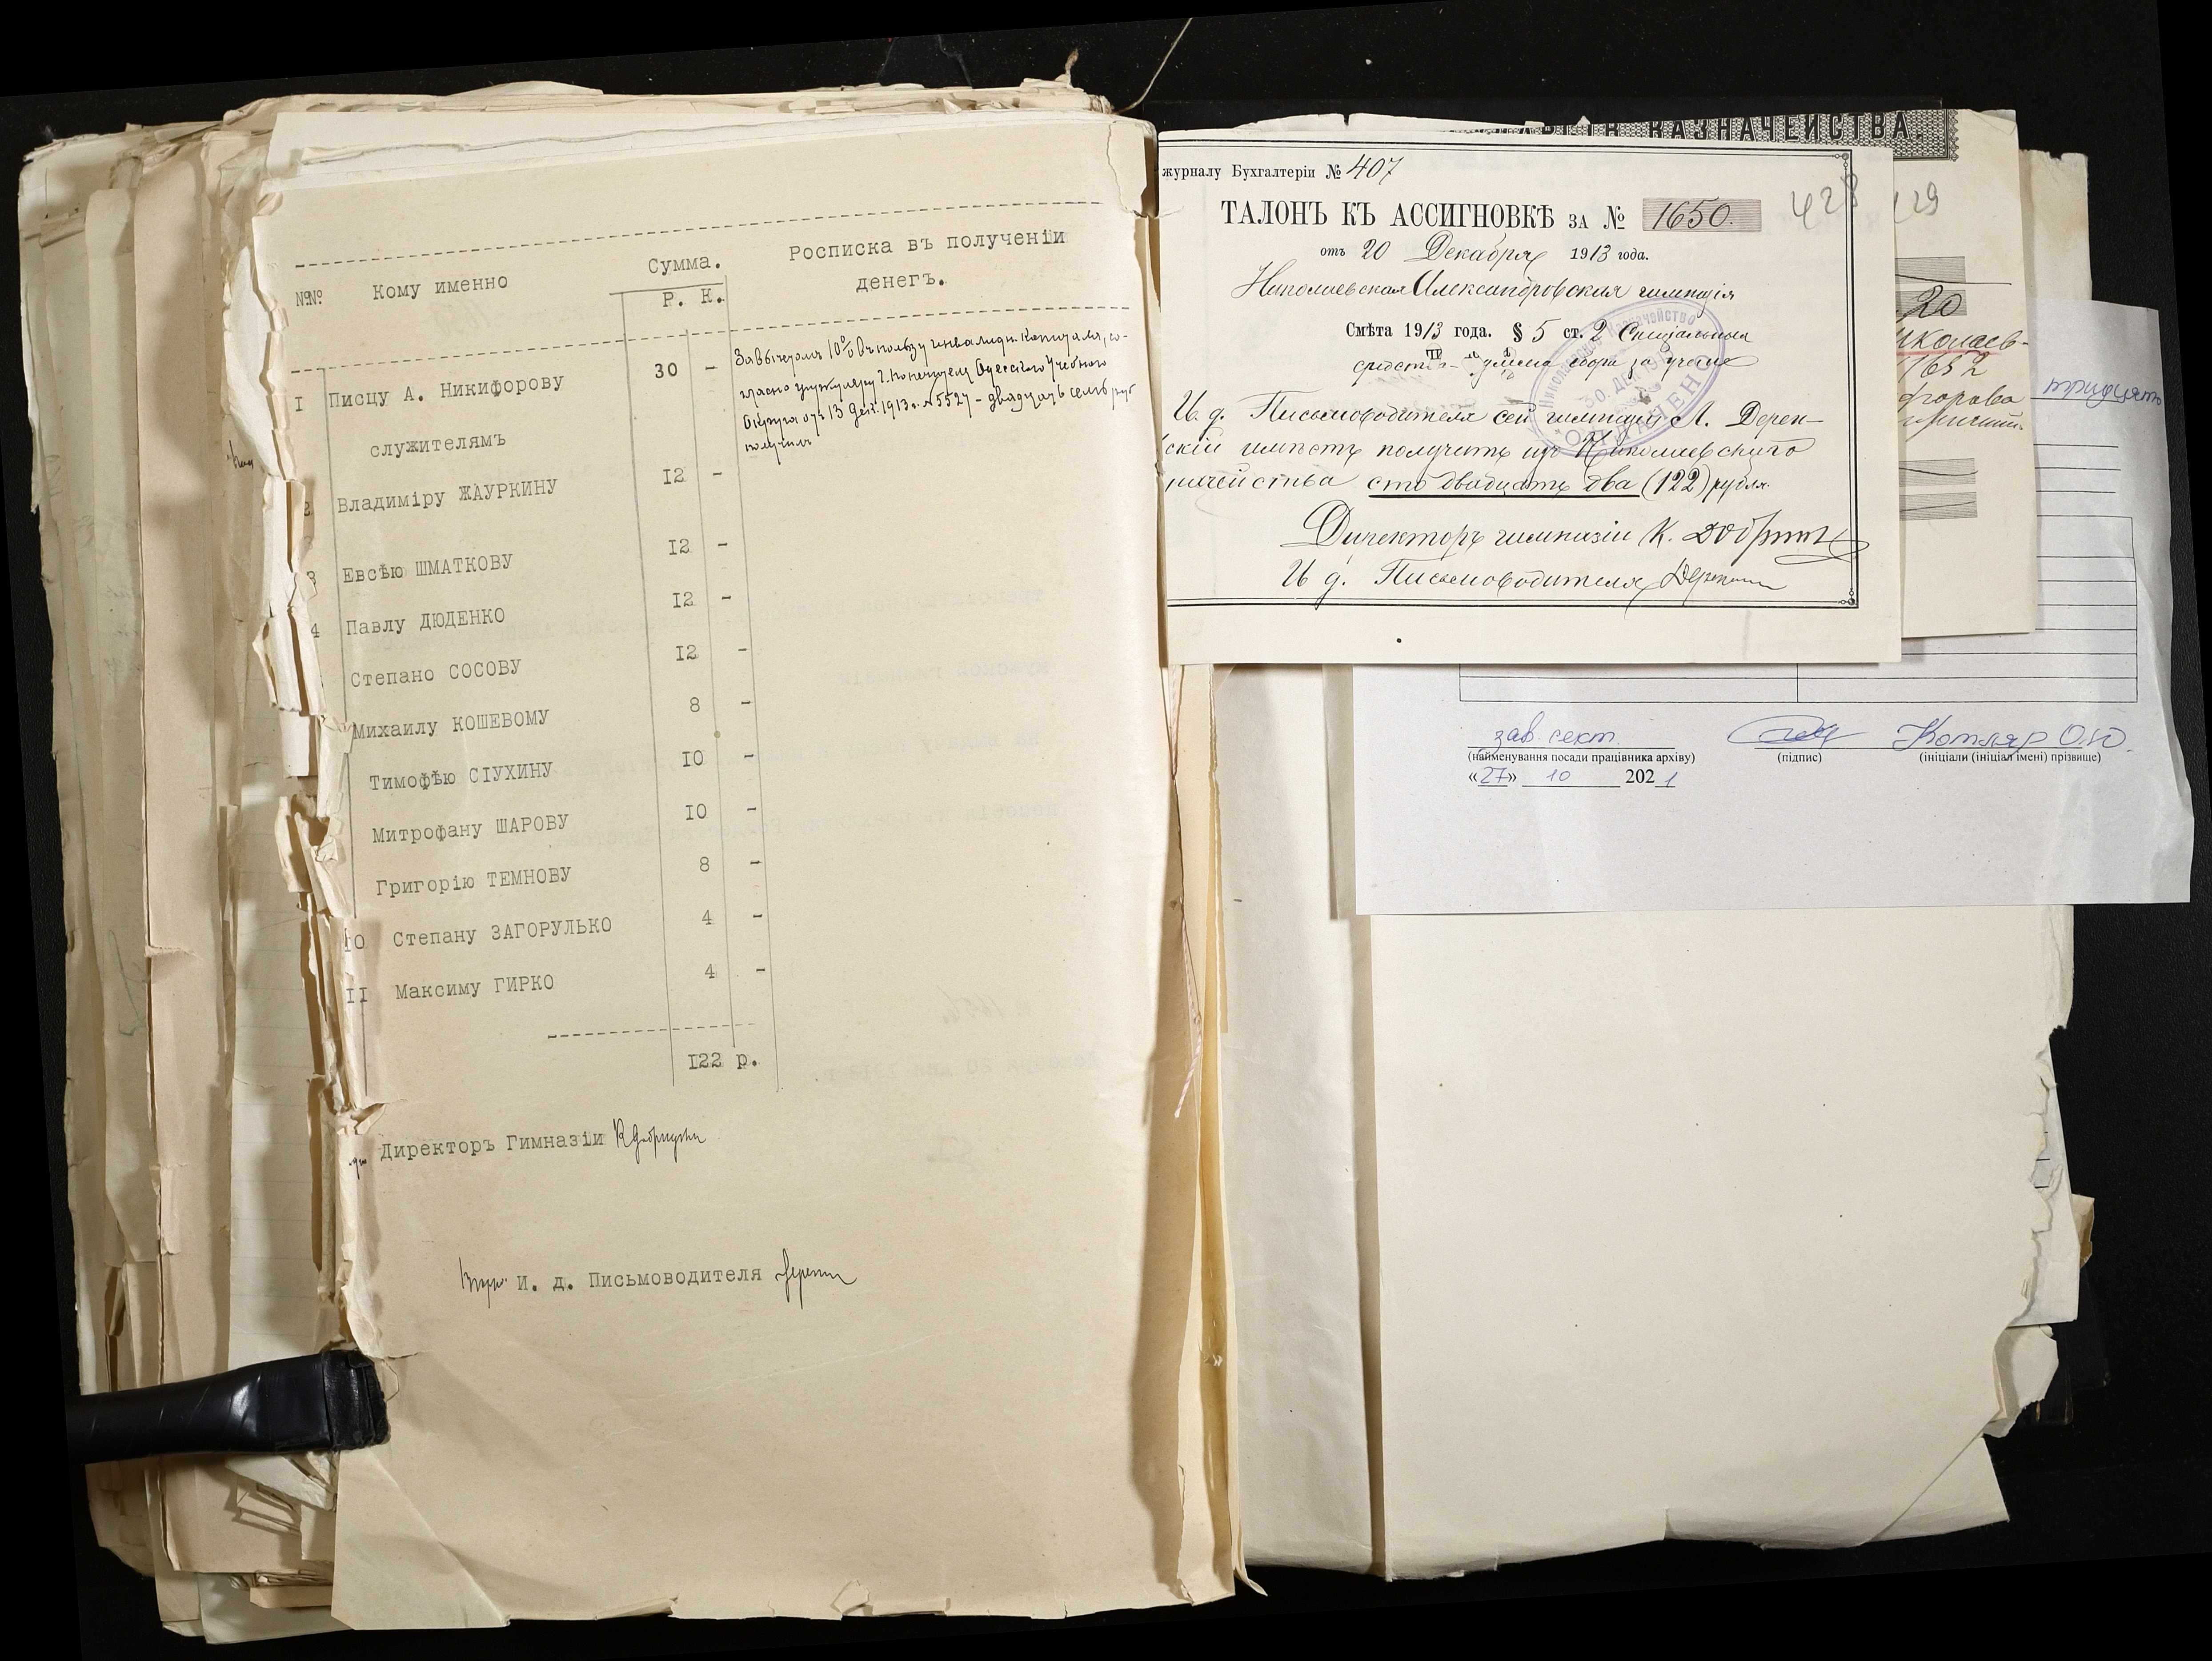 №№ Кому именно Сумма. Росписка въ полученіи
Р. К. денегъ.
I Писцу А. Никифорову 30 -
За вычетомъ 10% въ пользу инвалидн. капитала, со-
гласно циркуляру Г. Попечителя Одесскаго Учебного
Округа отъ 13 дек. 1913 г. № 5527 - двадцать семь руб
получилъ
служителямъ
2 Владиміру ЖАУРКИНУ 12 -
3 Евсѣю ШМАТКОВУ 12 -
4 Павлу ДЮДЕНКО 12 -
Степано СОСОВУ 12 -
Михаилу КОШЕВОМУ 8 -
Тимофѣю СІУХИНУ 10 -
Митрофану ШАРОВУ 10 -
Григорію ТЕМНОВУ 8 -
10 Степану ЗАГОРУЛЬКО 4 -
II Максиму ГИРКО 4 -
122 р.
Директоръ Гимназіи
И. д. Письмоводителя
КАЗНАЧЕЙСТВА.
журналу Бухгалтеріи № 407
ТАЛОНЪ КЪ АССИГНОВКѢ ЗА № 1650.
428
отъ 20 Декабря 1913 года.
Николаевская Александровская гимназія
Смѣта 1913 года. § 5 ст. 2 Спеціальныя
средства - сбора за ученіе
И. д. Письмоводителя сей гимназіи А. Дерен-
скій имѣетъ получить изъ Николаевскаго
начейства сто двадцать два (122) рубля.
Директоръ гимназіи К.
И д. Письмоводителя
29
20
иколаев-
1652
форова
тридцять
зав. сект. Котляр О.Ю.
(найменування посади працівника архіву) (підпис) (ініціали (ініціал імені) прізвище)
«27» 10 2021